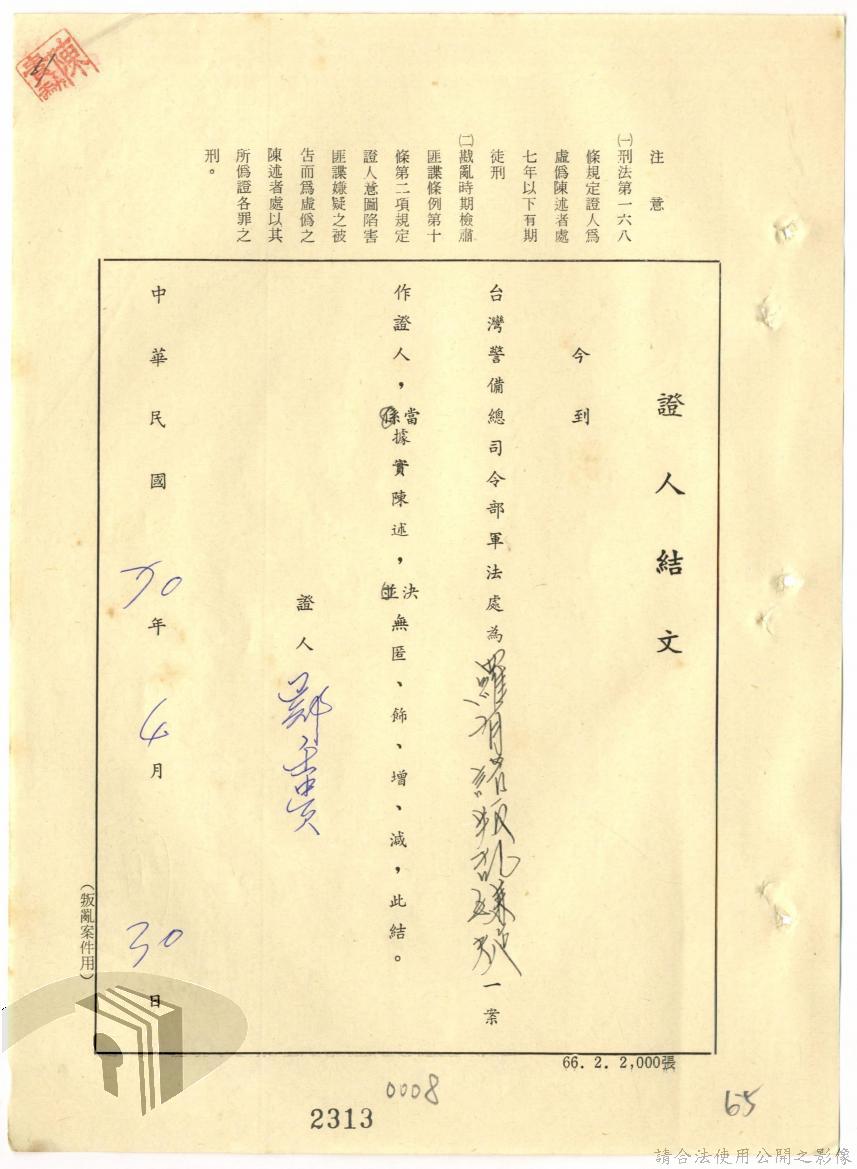 注意
㈠刑法第一六八
條規定證人為
虛偽陳述者處
七年以下有期
徒刑
㈡戡亂時期檢肅
匪諜條例第十
條第二項規定
證人意圖陷害
匪諜嫌疑之被
告而為虛偽之
陳述者處以其
所偽證各罪之
刑。
證人結文
今到
台灣警備總司令部軍法處為羅有增叛亂嫌疑一案
作證人，當據實陳述，決無匿、飾、增、減，此結。
證人 鄭
中華民國70年4月30日
（叛亂案件用）
66. 2. 2,000張
0008
2313
65
請合法使用公開之影像